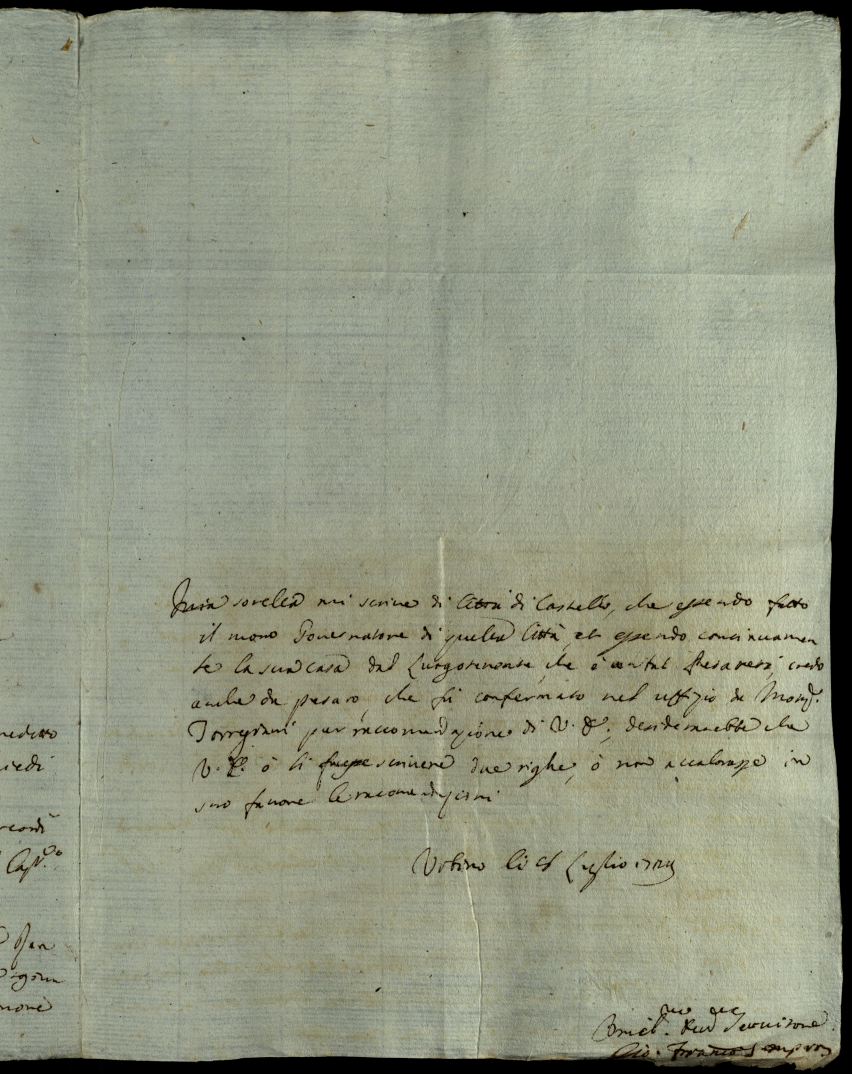 nedetto
hiedi
Capᵒ.
Ben
Mia sorella mi scrive di Città di Castello, che essendo fatto
il novo Governatore di quella Città, et essendo continuamen
te la sua casa dal Luogotenente, che è un tal Pesarese, credo
anche da pesaro, che fù confermato nel uffizio da Monsʳ.
Torregiani per raccomandazione di V. E., desiderarebbe che
V. E. ò li facesse scrivere due righe, ò ne accalorasse in
suo favore le racomandazioni
Urbino li Luglio
Servitore
Gio. Franco Sempron